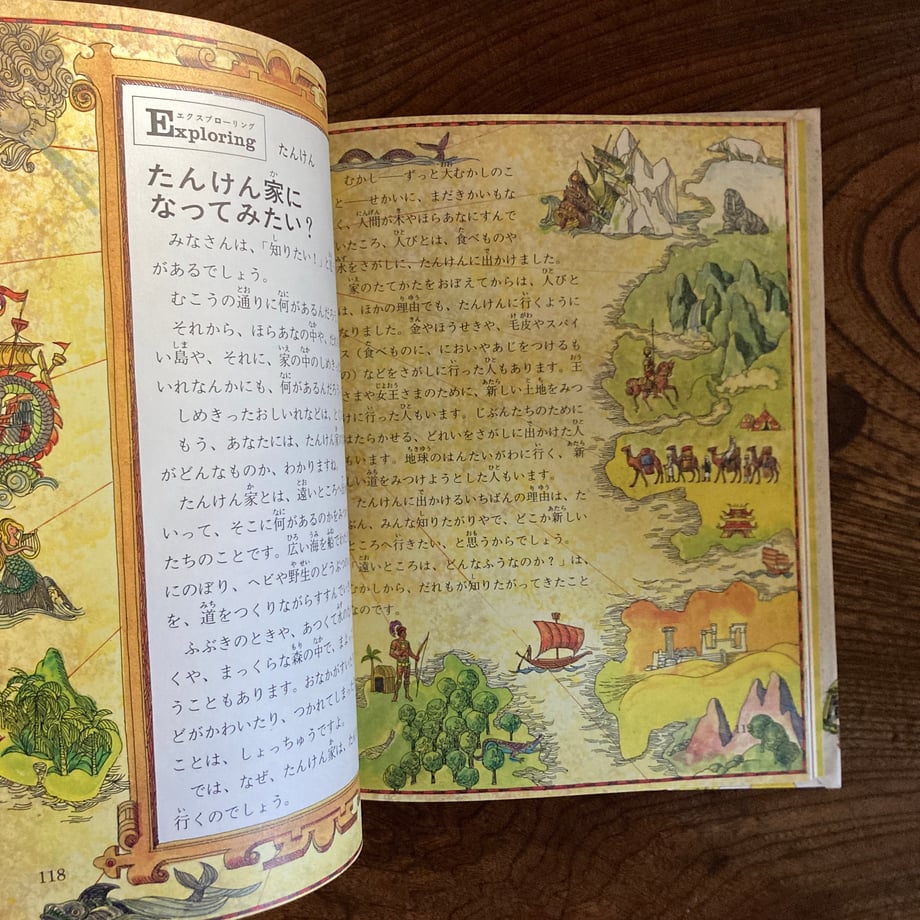 エクスプローリング
Exploring
たんけん
たんけん家に
なってみたい?
みなさんは、「知りたい!」と
があるでしょう。
むこうの通りに何があるんだろ
それから、ほらあなの中や、
い島や、それに、家の中のしめき
いれなんかにも、何があるんだろ
しめきったおしいれなどは、
もう、あなたには、たんけん家
がどんなものか、わかりますね。
たんけん家とは、遠いところへ
いって、そこに何があるのかをみつ
たちのことです。広い海を船で
にのぼり、ヘビや野生のどうぶつ
を、道をつくりながらすすんで
ふぶきのときや、あつくて水の
くや、まっくらな森の中で、まよ
うこともあります。おなかがすい
どがかわいたり、つかれてしまっ
ことは、しょっちゅうですよ。
では、なぜ、たんけん家は、
行くのでしょう。
118
むかし——ずっと大むかしのこ
と——せかいに、まだきかいもな
く、人間が木やほらあなにすんで
いたころ、人びとは、食べものや
水をさがしに、たんけんに出かけました。
家のたてかたをおぼえてからは、人びと
は、ほかの理由でも、たんけんに行くように
なりました。金やほうせきや、毛皮やスパイ
ス(食べものに、においやあじをつけるも
の)などをさがしに行った人もあります。王
さまや女王さまのために、新しい土地をみつ
けに行った人もいます。じぶんたちのために
はたらかせる、どれいをさがしに出かけた人
もいます。地球のはんたいがわに行く、新
しい道をみつけようとした人もいます。
たんけんに出かけるいちばんの理由は、た
ぶん、みんな知りたがりやで、どこか新しい
ところへ行きたい、と思うからでしょう。
「遠いところは、どんなふうなのか?」は、
むかしから、だれもが知りたがってきたこと
なのです。